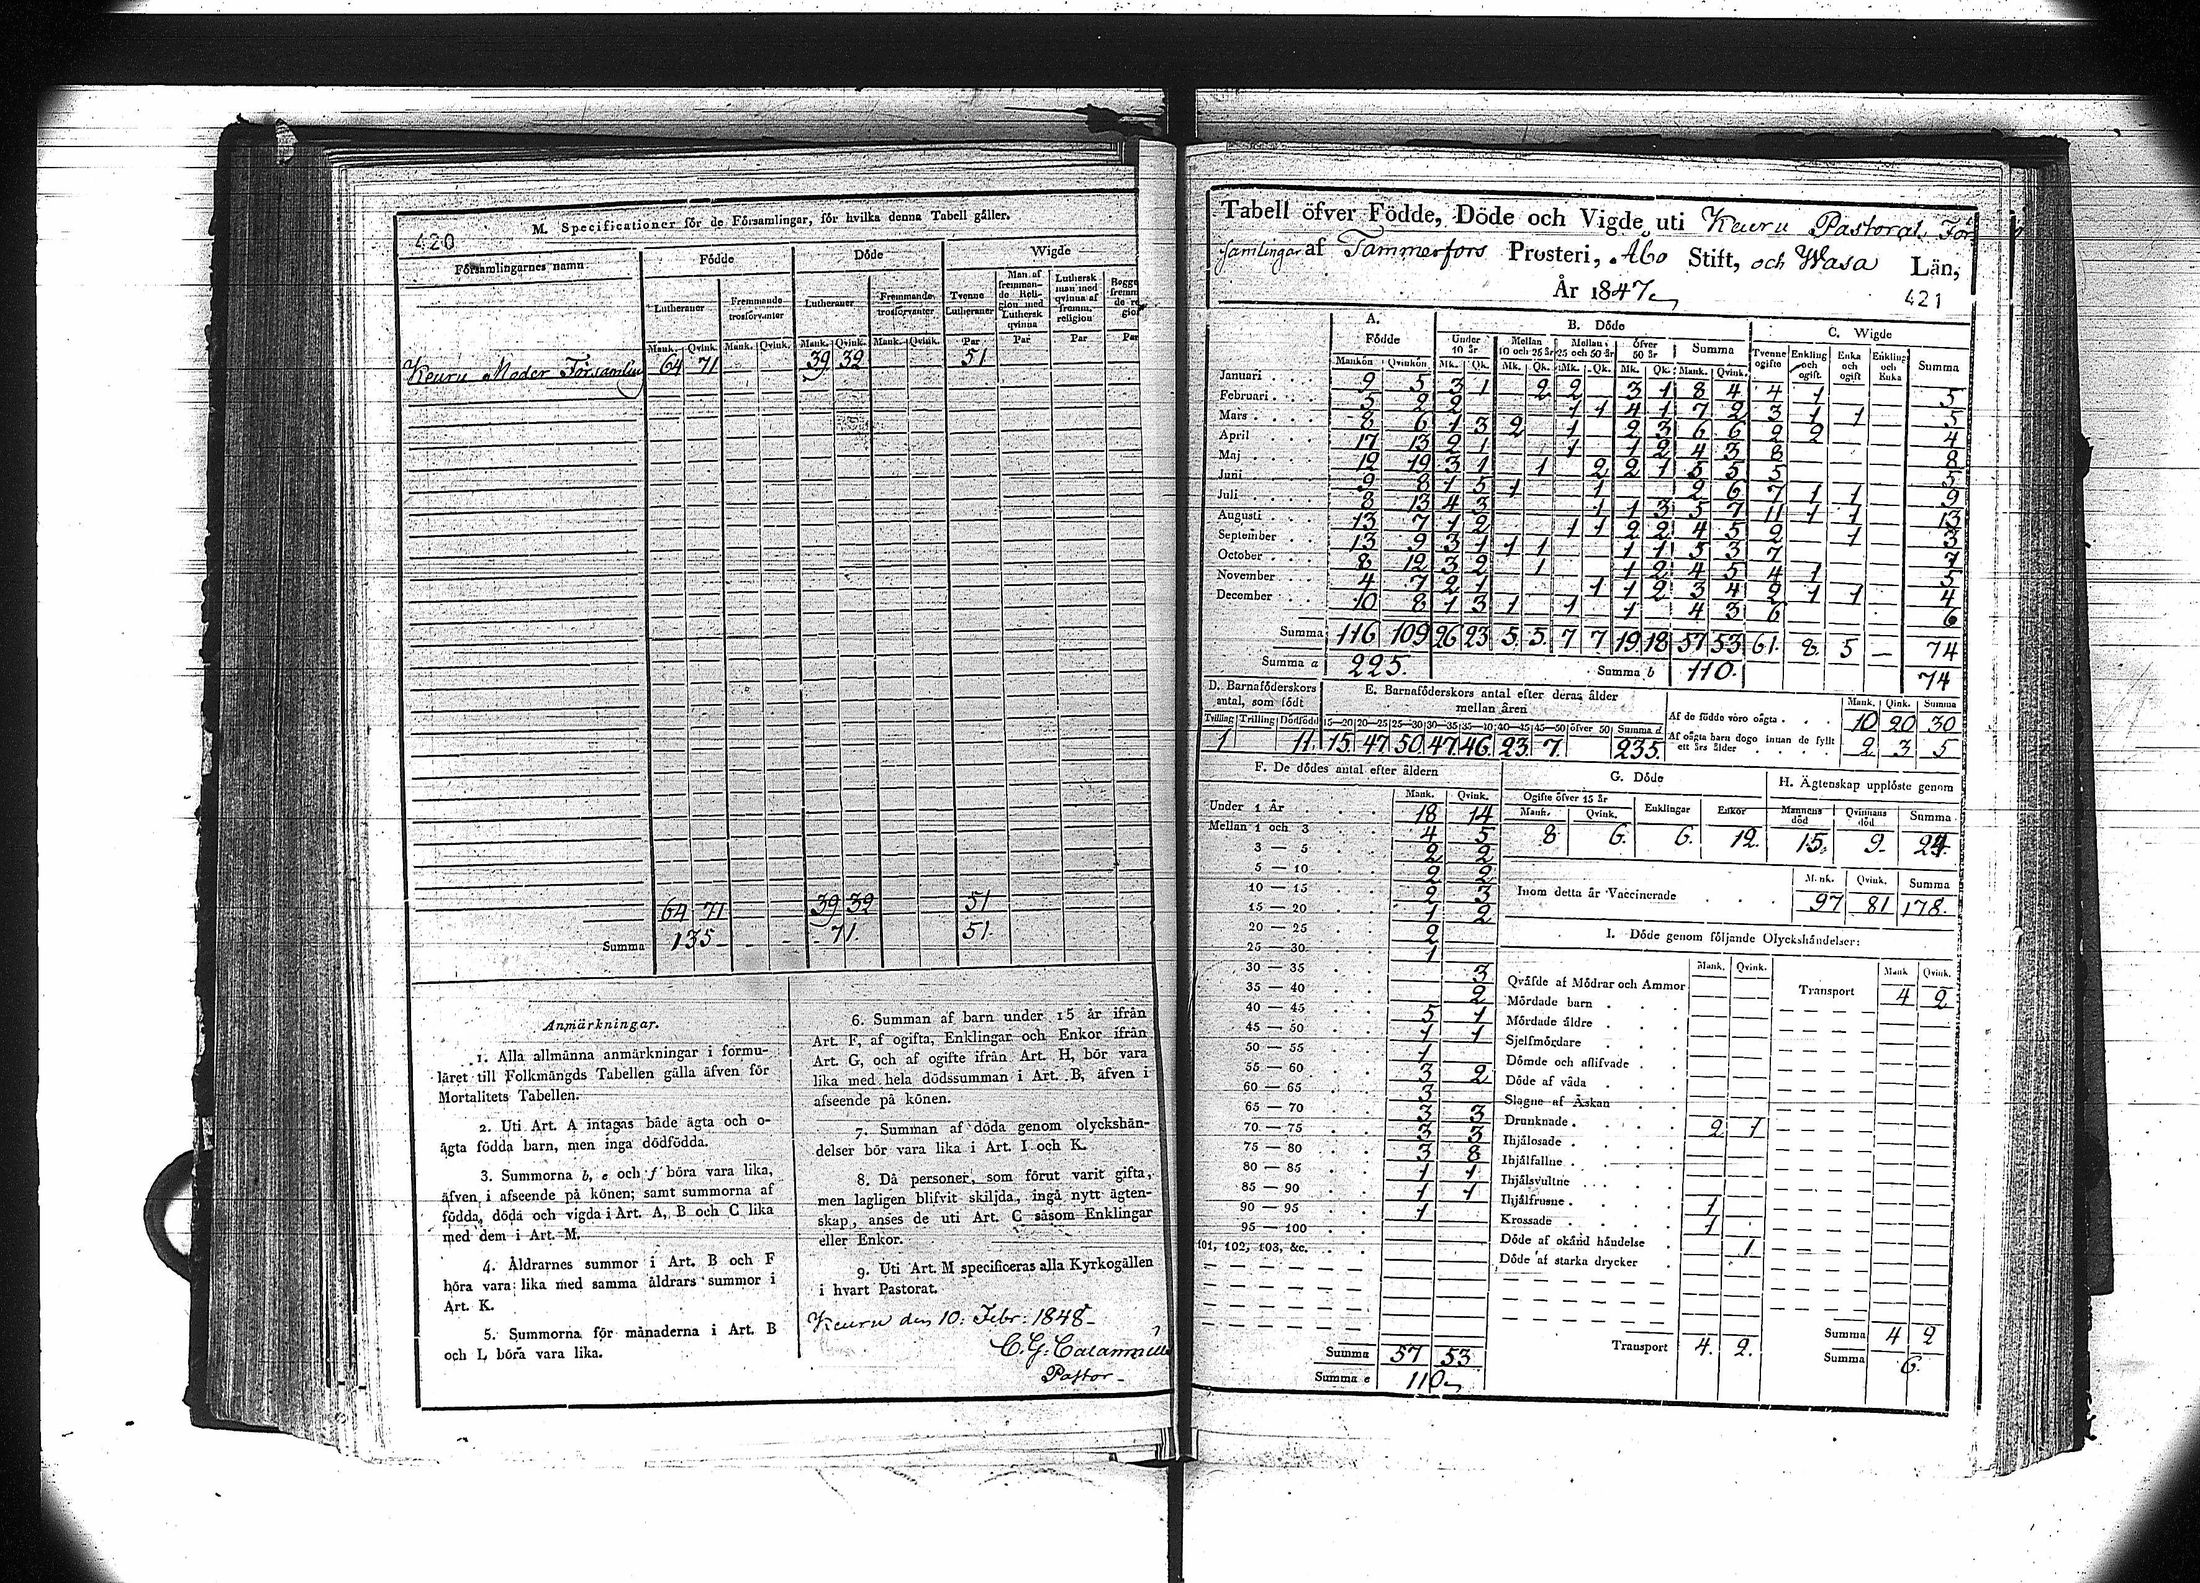 M. Specificationer för de Församlingar, för hvilka denna Tabell gäller.
420
Församlingarnes namn
Födde
Döde
Wigde
Lutheraner
Fremmande trosförvanter
Lutheraner
Fremmande trosförvanter
Tvenne Lutheraner
Man af fremmande Religion med Luthersk qvinna
Luthersk man med qvinna af fremm. religion
Mank. Qvink. Mank. Qvink. Mank. Qvink. Mank. Qvink. Par Par Par Par
Keuru Moder Församling 64 71 39 32 51
64 71 39 32 51
Summa 135 71. 51.
Anmärkningar.
1. Alla allmänna anmärkningar i formu-
läret till Folkmängds Tabellen gälla äfven för
Mortalitets Tabellen.
2. Uti Art. A intagas både ägta och o-
ägta födda barn, men inga dödfödda.
3. Summorna b, e och f böra vara lika,
äfven i afseende på könen; samt summorna af
födda, döda och vigda i Art. A, B och C lika
med dem i Art. M.
4. Åldrarnes summor i Art. B och F
böra vara lika med samma åldrars summor i
Art. K.
5. Summorna för månaderna i Art. B
och L böra vara lika.
6. Summan af barn under 15 år ifrån
Art. F, af ogifta, Enklingar och Enkor ifrån
Art. G, och af ogifte ifrån Art. H, bör vara
lika med hela dödssumman i Art. B, äfven i
afseende på könen.
7. Summan af döda genom olyckshän-
delser bör vara lika i Art. I och K.
8. Då personer, som förut varit gifta,
men lagligen blifvit skiljda, ingå nytt ägten-
skap, anses de uti Art. C såsom Enklingar
eller Enkor.
9. Uti Art. M specificeras alla Kyrkogällen
i hvart Pastorat.
Keuru den 10. Febr: 1848
Pastor
Tabell öfver Födde, Döde och Vigde uti Keuru Pastorat För
samlingar af Tammerfors Prosteri, Åbo Stift, och Wasa Län,
År 1847
421
A.
Födde
B. Döde
C. Wigde
Under 10 år
Mellan 10 och 25 år
Mellan 25 och 50 år
öfver 50 år
Summa
Tvenne ogifte
Enkling och ogift
Enka och ogift
Enkling och Enka
Summa
Mankön Qvinkön Mk. Qk. Mk. Qk. Mk. Qk. Mk. Qk. Mank. Qvink.
Januari 9 5 3 1 2 2 3 1 8 4 4 1 5
Februari 5 2 2 1 1 4 1 7 2 3 1 1 5
Mars 8 6 1 3 2 1 2 3 6 6 2 2 4
April 17 13 2 1 1 1 2 4 3 8 8
Maj 12 19 3 1 1 2 2 1 5 5 5 5
Juni 9 8 1 5 1 1 2 6 7 1 1 9
Juli 8 13 4 3 1 1 3 5 7 11 1 1 13
Augusti 13 7 1 2 1 1 2 2 4 5 2 1 3
September 13 9 3 1 1 1 1 1 5 3 7 7
October 8 12 3 2 1 1 2 4 5 4 1 5
November 4 7 2 1 1 1 2 3 4 2 1 1 4
December 10 8 1 3 1 1 1 4 3 6 6
Summa 116 109 26 23 5. 5. 7 7 19 18 57 53 61. 8. 5 — 74
Summa a 225. Summa b 110. 74
D. Barnaföderskors antal, som födt
Tvilling Trilling Dödfödd
1 11.
E. Barnaföderskors antal efter deras ålder
mellan åren
15—20 20—25 25—30 30—35 35—40 40—45 45—50 öfver 50 Summa d
15. 47 50 47 46 23 7. 235.
Mank. Qink. Summa
Af de födde voro oägta 10 20 30
Af oägta barn dogo innan de fyllt
ett års ålder 2 3 5
F. De dödes antal efter åldern
Mank. Qvink.
Under 1 År 18 14
Mellan 1 och 3 4 5
3 — 5 2 2
5 — 10 2 2
10 — 15 2 3
15 — 20 1 2
20 — 25 2
25 — 30 1
30 — 35 3
35 — 40 2
40 — 45 5 1
45 — 50 1 1
50 — 55 1
55 — 60 3 2
60 — 65 3
65 — 70 3 3
70 — 75 3 3
75 — 80 3 8
80 — 85 1 1
85 — 90 1 1
90 — 95 1
95 — 100
101, 102, 103, &c.
Summa 57 53
Summa e 110
G. Döde
Ogifte öfver 15 år
Mank. Qvink. Enklingar Enkor
8 6. 6. 12.
H. Ägtenskap upplöste genom
Mannens död Qvinnans död Summa
15. 9. 24.
Mank. Qvink. Summa
Inom detta år Vaccinerade 97 81 178.
I. Döde genom följande Olyckshändelser:
Mank. Qvink. Mank Qvink.
Qväfde af Mödrar och Ammor
Transport 4 2
Mördade barn
Mördade äldre
Sjelfmördare
Dömde och aflifvade
Döde af våda
Slagne af Åskan
Drunknade 2 1
Ihjälosade
Ihjälfallne
Ihjälsvultne
Ihjälfrusne 1
Krossade 1
Döde af okänd händelse 1
Döde af starka drycker
Transport 4. 2.
Summa 4 2
Summa 6.